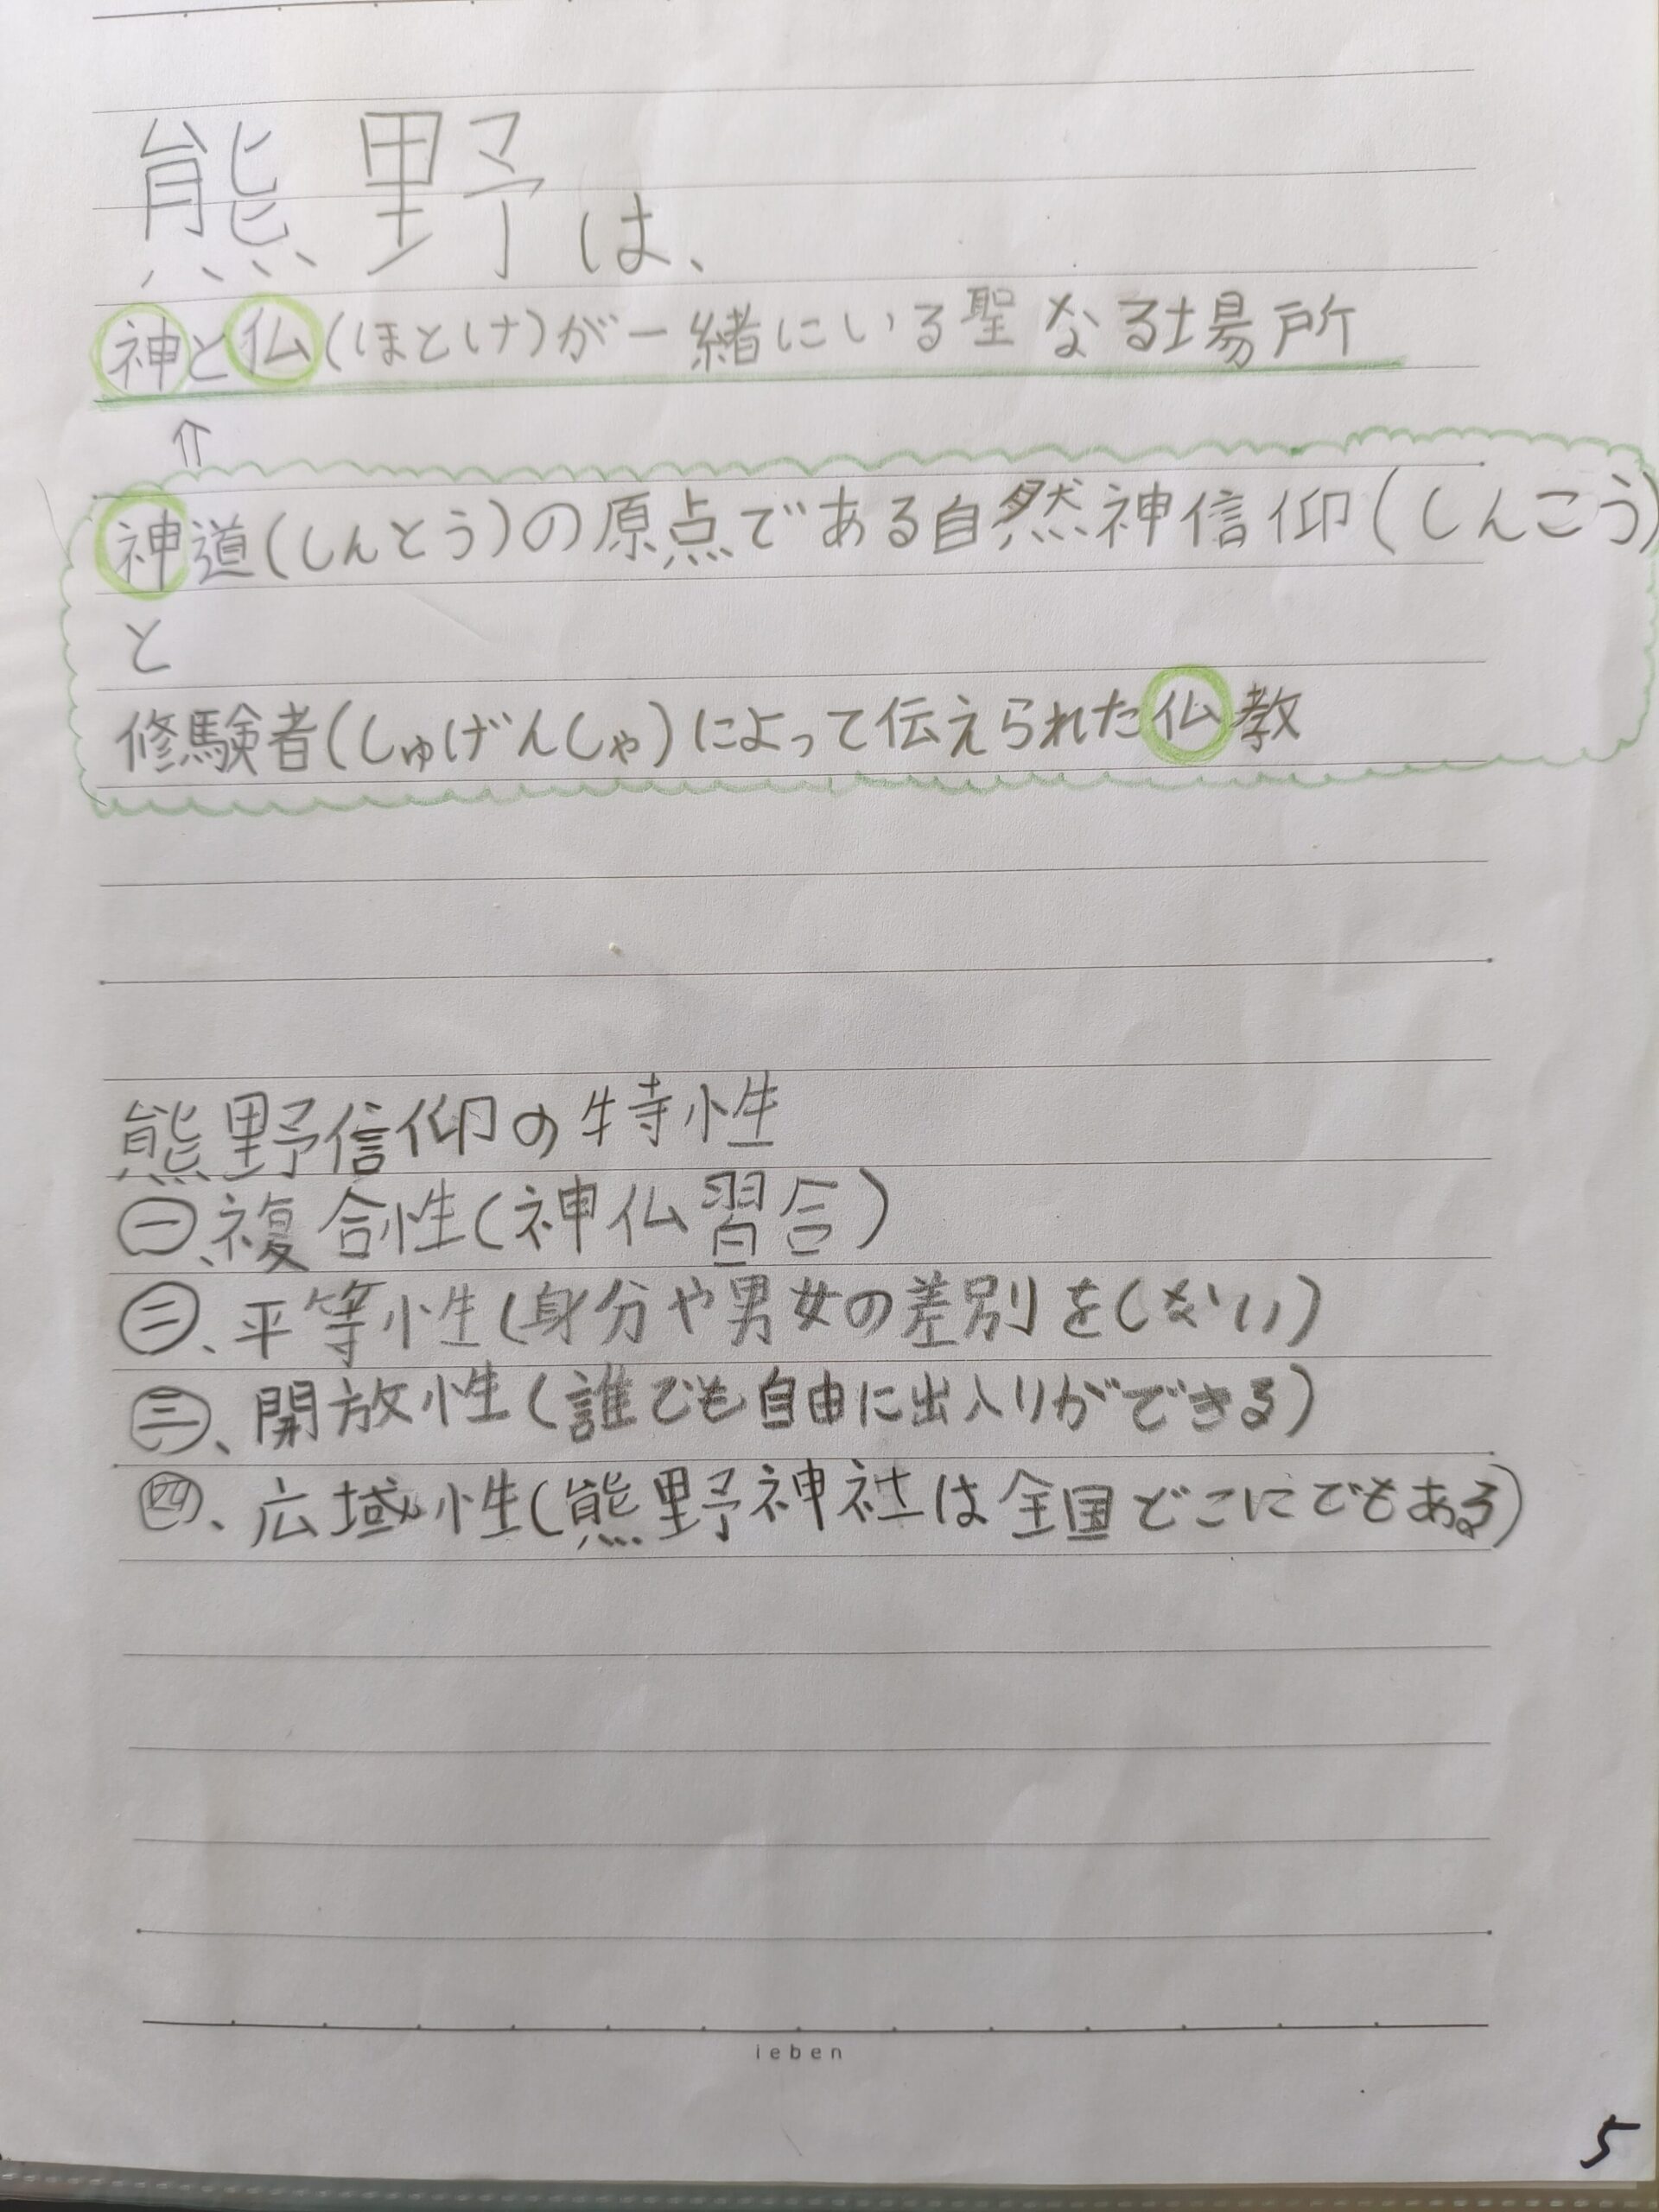 熊野は、
神と仏(ほとけ)が一緒にいる聖なる場所
⇑
神道(しんとう)の原点である自然神信仰(しんこう)
と
修験者(しゅげんしゃ)によって伝えられた仏教
熊野信仰の特性
㊀、複合性(神仏習合)
㊁、平等性(身分や男女の差別をしない)
㊂、開放性(誰でも自由に出入りができる)
㊃、広域性(熊野神社は全国どこにでもある)
ieben
5